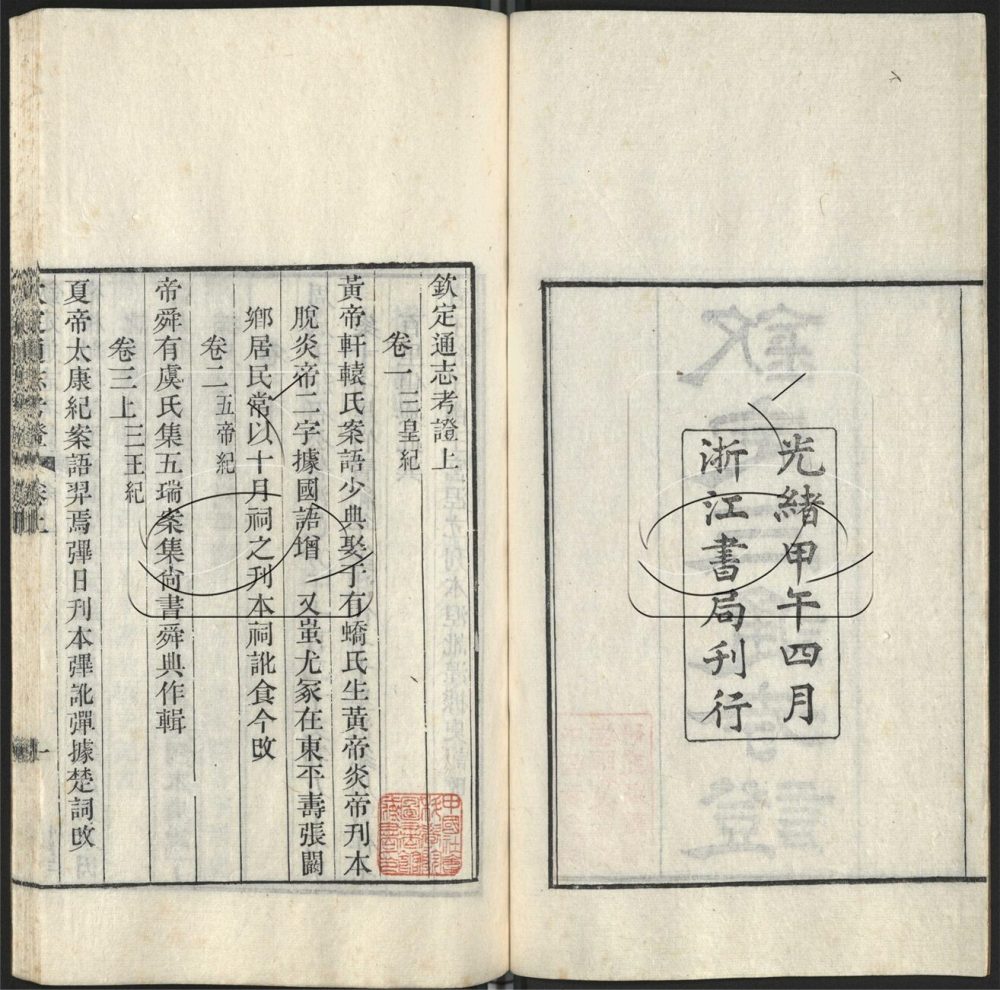 光緒甲午四月
浙江書局刊行
欽定通志考證上
卷一三皇紀
黃帝軒轅氏案語少典娶于有蟜氏生黃帝炎帝刊本
脫炎帝二字據國語增　又蚩尤冢在東平壽張闞
鄉居民常以十月祠之刊本祠訛食今攺
卷二五帝紀
帝舜有虞氏集五瑞案集尙書舜典作輯
卷三上三王紀
夏帝太康紀案語羿焉彈日刊本彈訛彈據楚詞攺